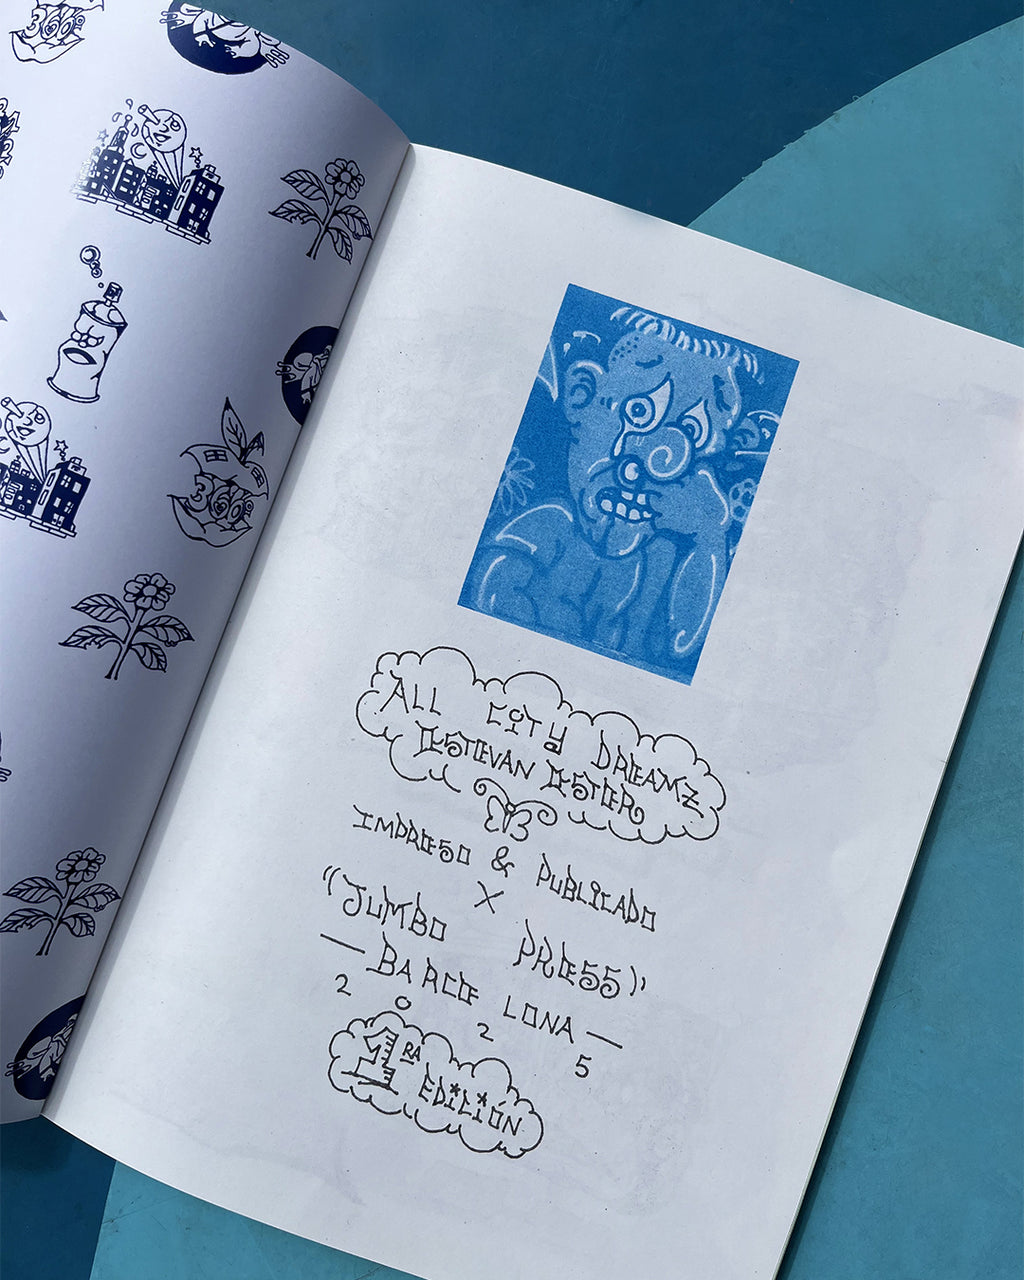 ALL CITY DREAMZ
ESTEVAN ESTER
IMPRESO & PUBLICADO
X
"JUMBO PRESS"
— BARCELONA —
2 0 2 5
1RA EDICIÓN
360º
360º